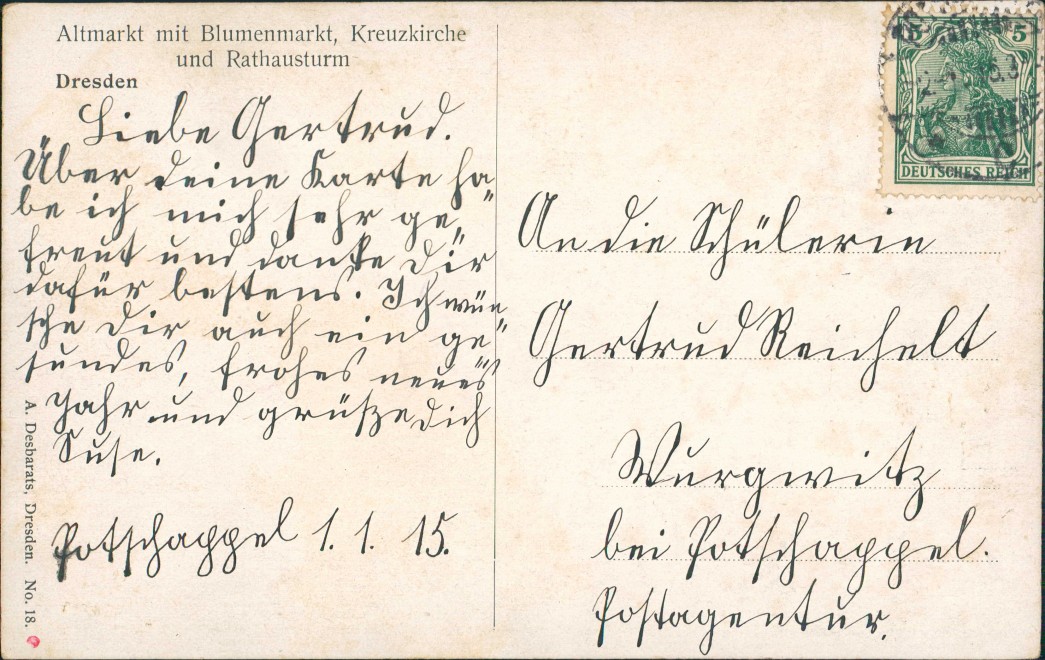 Altmarkt mit Blumenmarkt, Kreuzkirche
und Rathausturm
Dresden
Liebe Gertrud.
Über deine Karte ha
be ich mich sehr ge„
freut und danke Dir
dafür bestens. Ich wün„
sche Dir auch ein ge„
sundes, frohes neues
Jahr und grüße dich
Suse.
Potschappel 1. 1. 15.
A. Desbarats, Dresden. No. 18.
5
DEUTSCHES REICH
An die Schülerin
Gertrud Reichelt
Wurgwitz
bei Potschappel.
Postagentur.